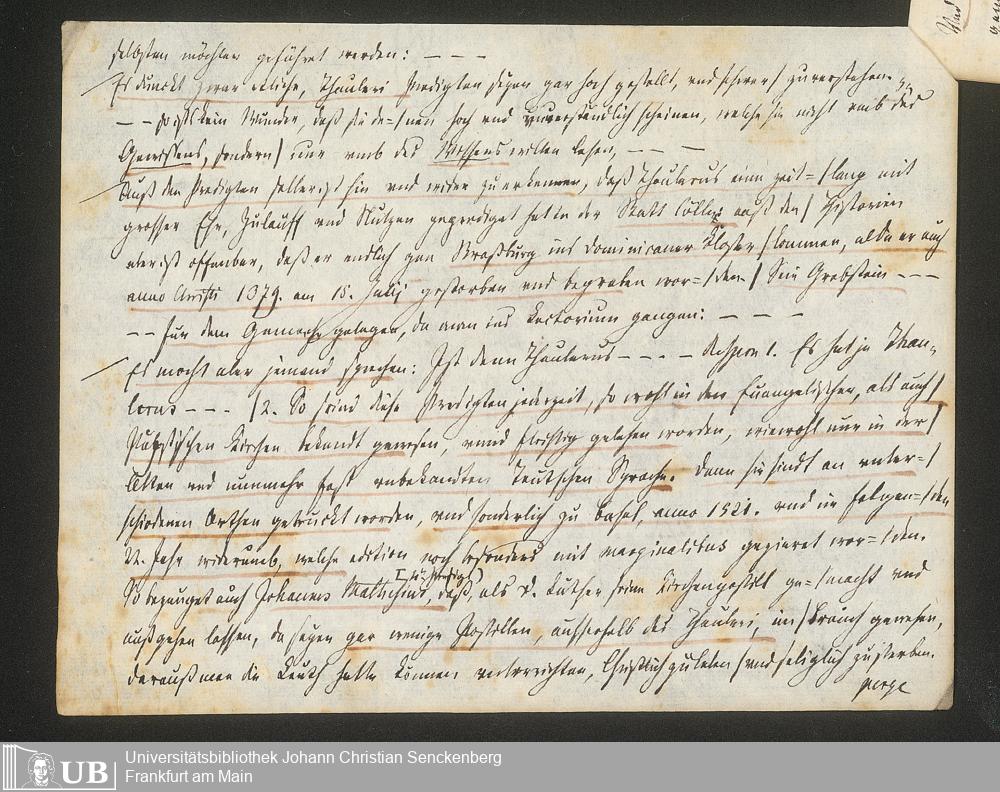 selbsten möchten geführet werden: – – –
Es dunckt zwar etliche, Thauleri Predigten seyen gar hoch gestellt, vnd schwer / zuverstehen.
– – so ists kein Wunder, daß sie de=/nen hoch vnd vnverständlich scheinen, welche sie nicht vmb des
Gewissens, sondern / nur vmb des Wissens willen lesen, – – –
Auß den Predigten selber ist hin vnd wider zuerkennen, daß Thaulerus eine zeit=/lang mit
grosser Ehr, Zulauff vnd Nutzen geprediget hat in der Statt Cölln: auß den / Historien
aber ist offenbar, daß er endlich gen Straßburg ins Dominicaner Kloster / kommen, alda er auch
anno Christi 1379. am 15. Julij gestorben vnd begraben wor=/den. / Sein Grabstein – – –
– – für dem Gemach gelegen, da man ins Lectorium gangen: – – –
Es mocht aber jemand sprechen: Ist denn Thaulerus – – – – Respon 1. Es hat ja Thau=
lerus – – – / 2. So seind diese Predigten jederzeit, so wohl in den Euangelischen, als auch /
Päpstischen Kirchen bekandt gewesen, vnnd fleissig gelesen worden, wiewohl nur in der /
alten vnd nunmehr fast vnbekandten Teutschen Sprache. Dann sie sindt an vnter=/
schiedenen Orthen getruckt worden, vnd sonderlich zu Basel, anno 1521. vnd im folgen=/den
22. Jahr widerumb, welche edition noch besonders mit marginalibus gezieret wor=/den.
So bezeuget auch Johannes Mathesius, daß, als D. Luther seine Kirchenpostill ge=/macht vnd
außgehen lassen, da seyen gar wenige Postillen, ausserhalb des Thauleri, im / Brauch gewesen,
darauß man die Leuth hette können vnterrichten, Christlich zuleben / vnd seliglich zu sterben.
perge
Universitätsbibliothek Johann Christian Senckenberg
Frankfurt am Main
UB